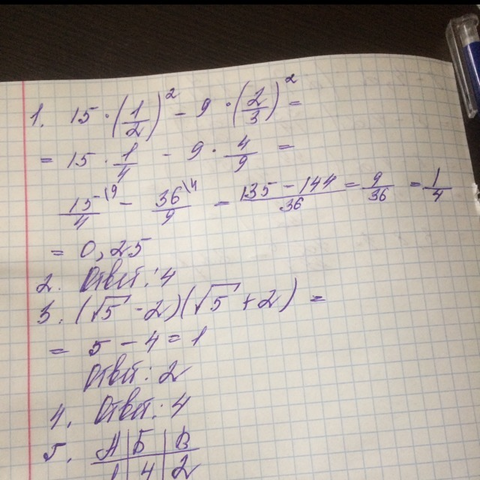 1. 15 · (1/2)² - 9 · (2/3)² =
= 15 · 1/4 - 9 · 4/9 =
15/4 \9 - 36/9 \4 = 135 - 144/36 = 9/36 = 1/4
= 0,25
2. Ответ: 4
3. (√5 - 2)(√5 + 2) =
= 5 - 4 = 1
Ответ: 2
4. Ответ: 4
5. А | Б | В
1 | 4 | 2